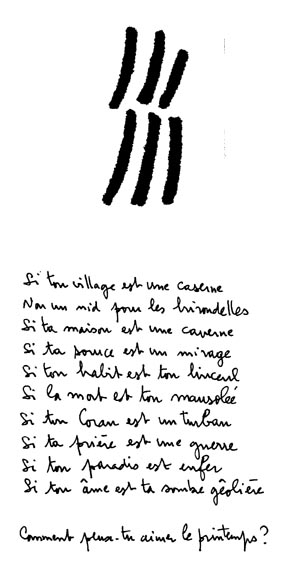 Si ton village est une caserne
Non un nid pour les hirondelles
Si ta maison est une caverne
Si ta source est un mirage
Si ton habit est ton linceul
Si la mort est ton mausolée
Si ton Coran est un turban
Si ta prière est une guerre
Si ton paradis est enfer
Si ton âme est ta sombre geôlière
Comment peux-tu aimer le printemps?